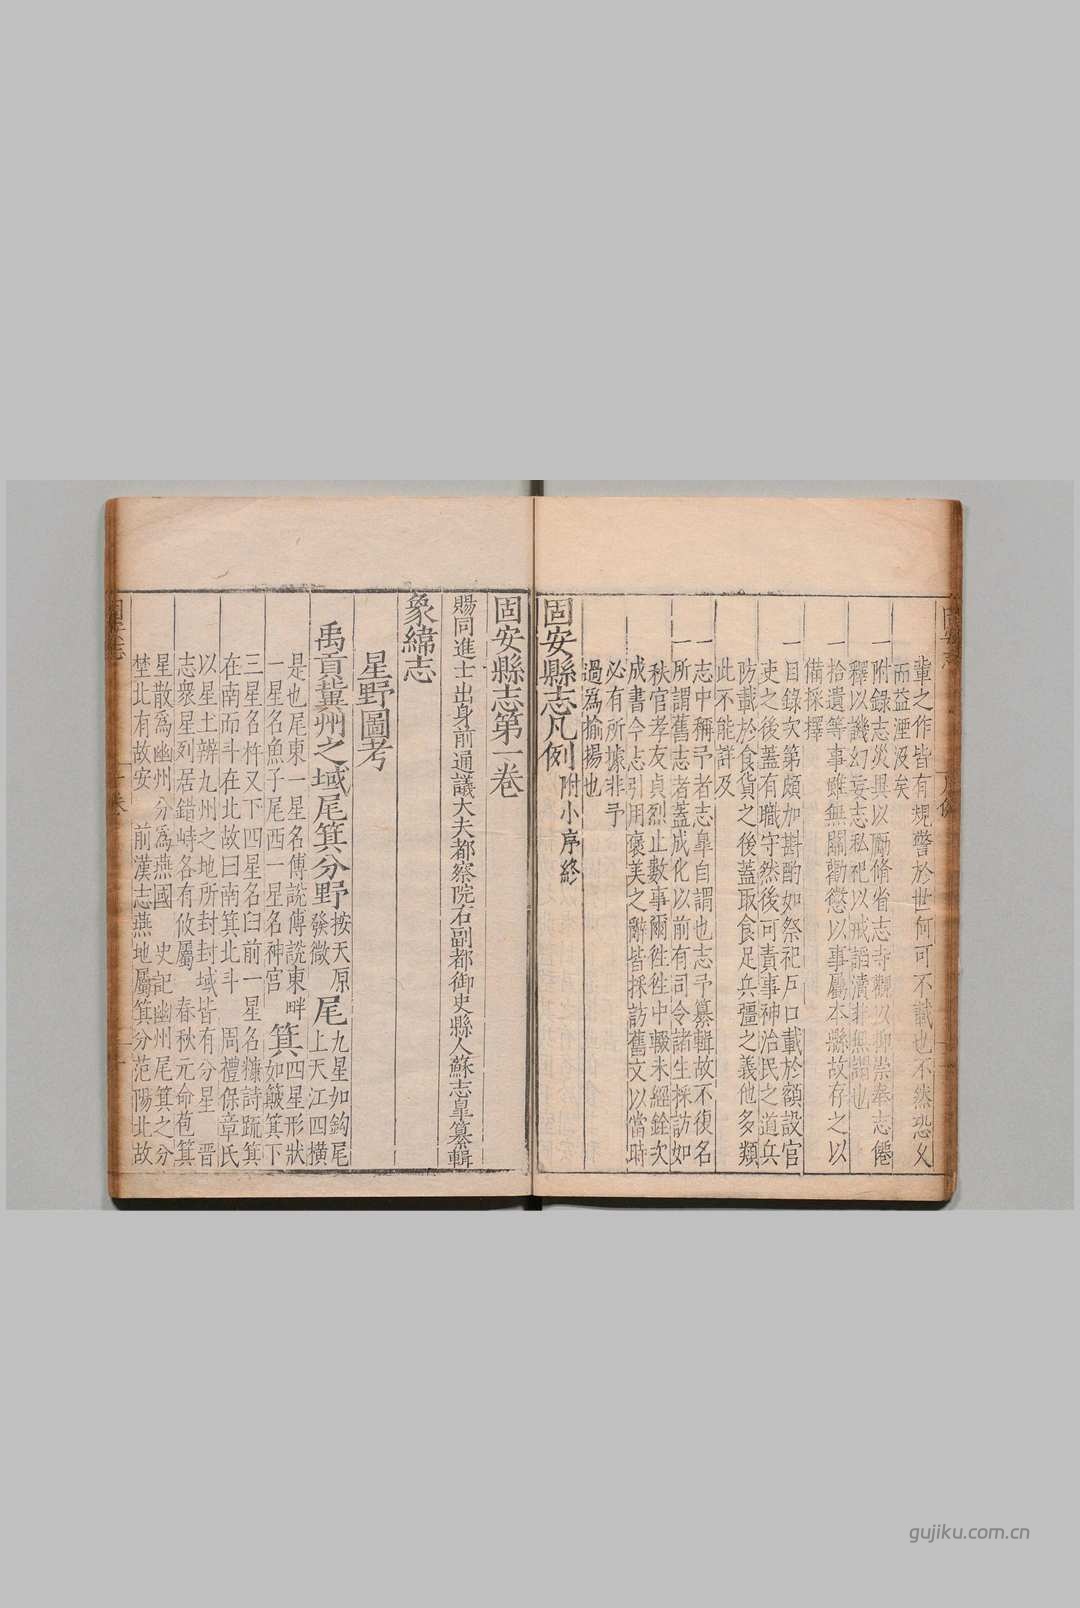 輩之作皆有規警於世何可不識也不然恐久
而益湮沒矣
一附錄志災異以勵脩省志寺觀以抑崇奉志僊
釋以譏幻妄志私祀以戒諂瀆非無謂也
一拾遺等事雖無關勸懲以事屬本縣故存之以
備採擇
一目錄次第頗加斟酌如祭祀戶口載於額設官
吏之後蓋有職守然後可責事神治民之道兵
防載於食貨之後蓋取食足兵彊之義他多類
此不能詳及
一志中稱予者志皐自謂也志予纂輯故不復名
所謂舊志者蓋成化以前有司令諸生採訪如
秋官孝友貞烈止數事爾徃徃中輟未經銓次
成書今志引用褒美之辭皆採訪舊文以當時
必有所據非予
過為揄揚也
固安縣志凡例附小序終
固安縣志第一卷
賜同進士出身前通議大夫都察院右副都御史縣人蘇志皐纂輯
象緯志
星野圖考
禹貢冀州之域尾箕分野按天原發微尾九星如鈎尾上天江四橫
是也尾東一星名傅說傅說東畔箕四星形狀如簸箕下
一星名魚子尾西一星名神宮
三星名杵又下四星名臼前一星名糠詩疏箕
在南而斗在北故曰南箕北斗 周禮保章氏
以星土辨九州之地所封封域皆有分星 晋
志衆星列居錯峙各有攸屬 春秋元命苞箕
星散為幽州分為燕國 史記幽州尾箕之分
埜北有故安 前漢志燕地屬箕分范陽北故
固安志
一卷
一
gujiku.com.cn